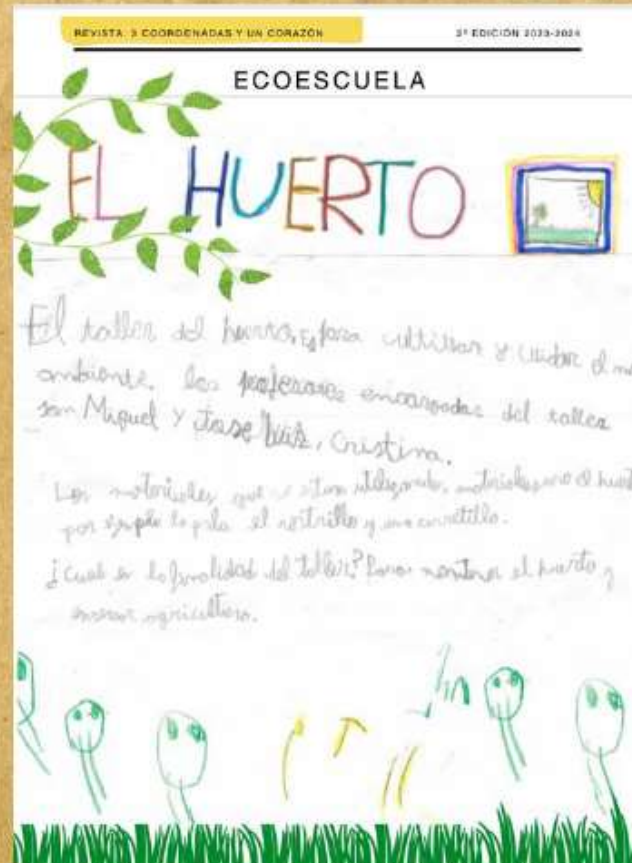 REVISTA 3 COORDENADAS Y UN CORAZÓN
2ª EDICIÓN 2023-2024
ECOESCUELA
EL HUERTO
El taller del huerto, es para cultivar y cuidar el
ambiente. los profesores encargados del taller
son Miguel y Jose Luis, Cristina.
Los materiales que utilizando, materiales para el
por ejemplo la pala el rastrillo y una carretilla.
¿Cual es la finalidad del taller? Para mantener el huerto y
agricultura.